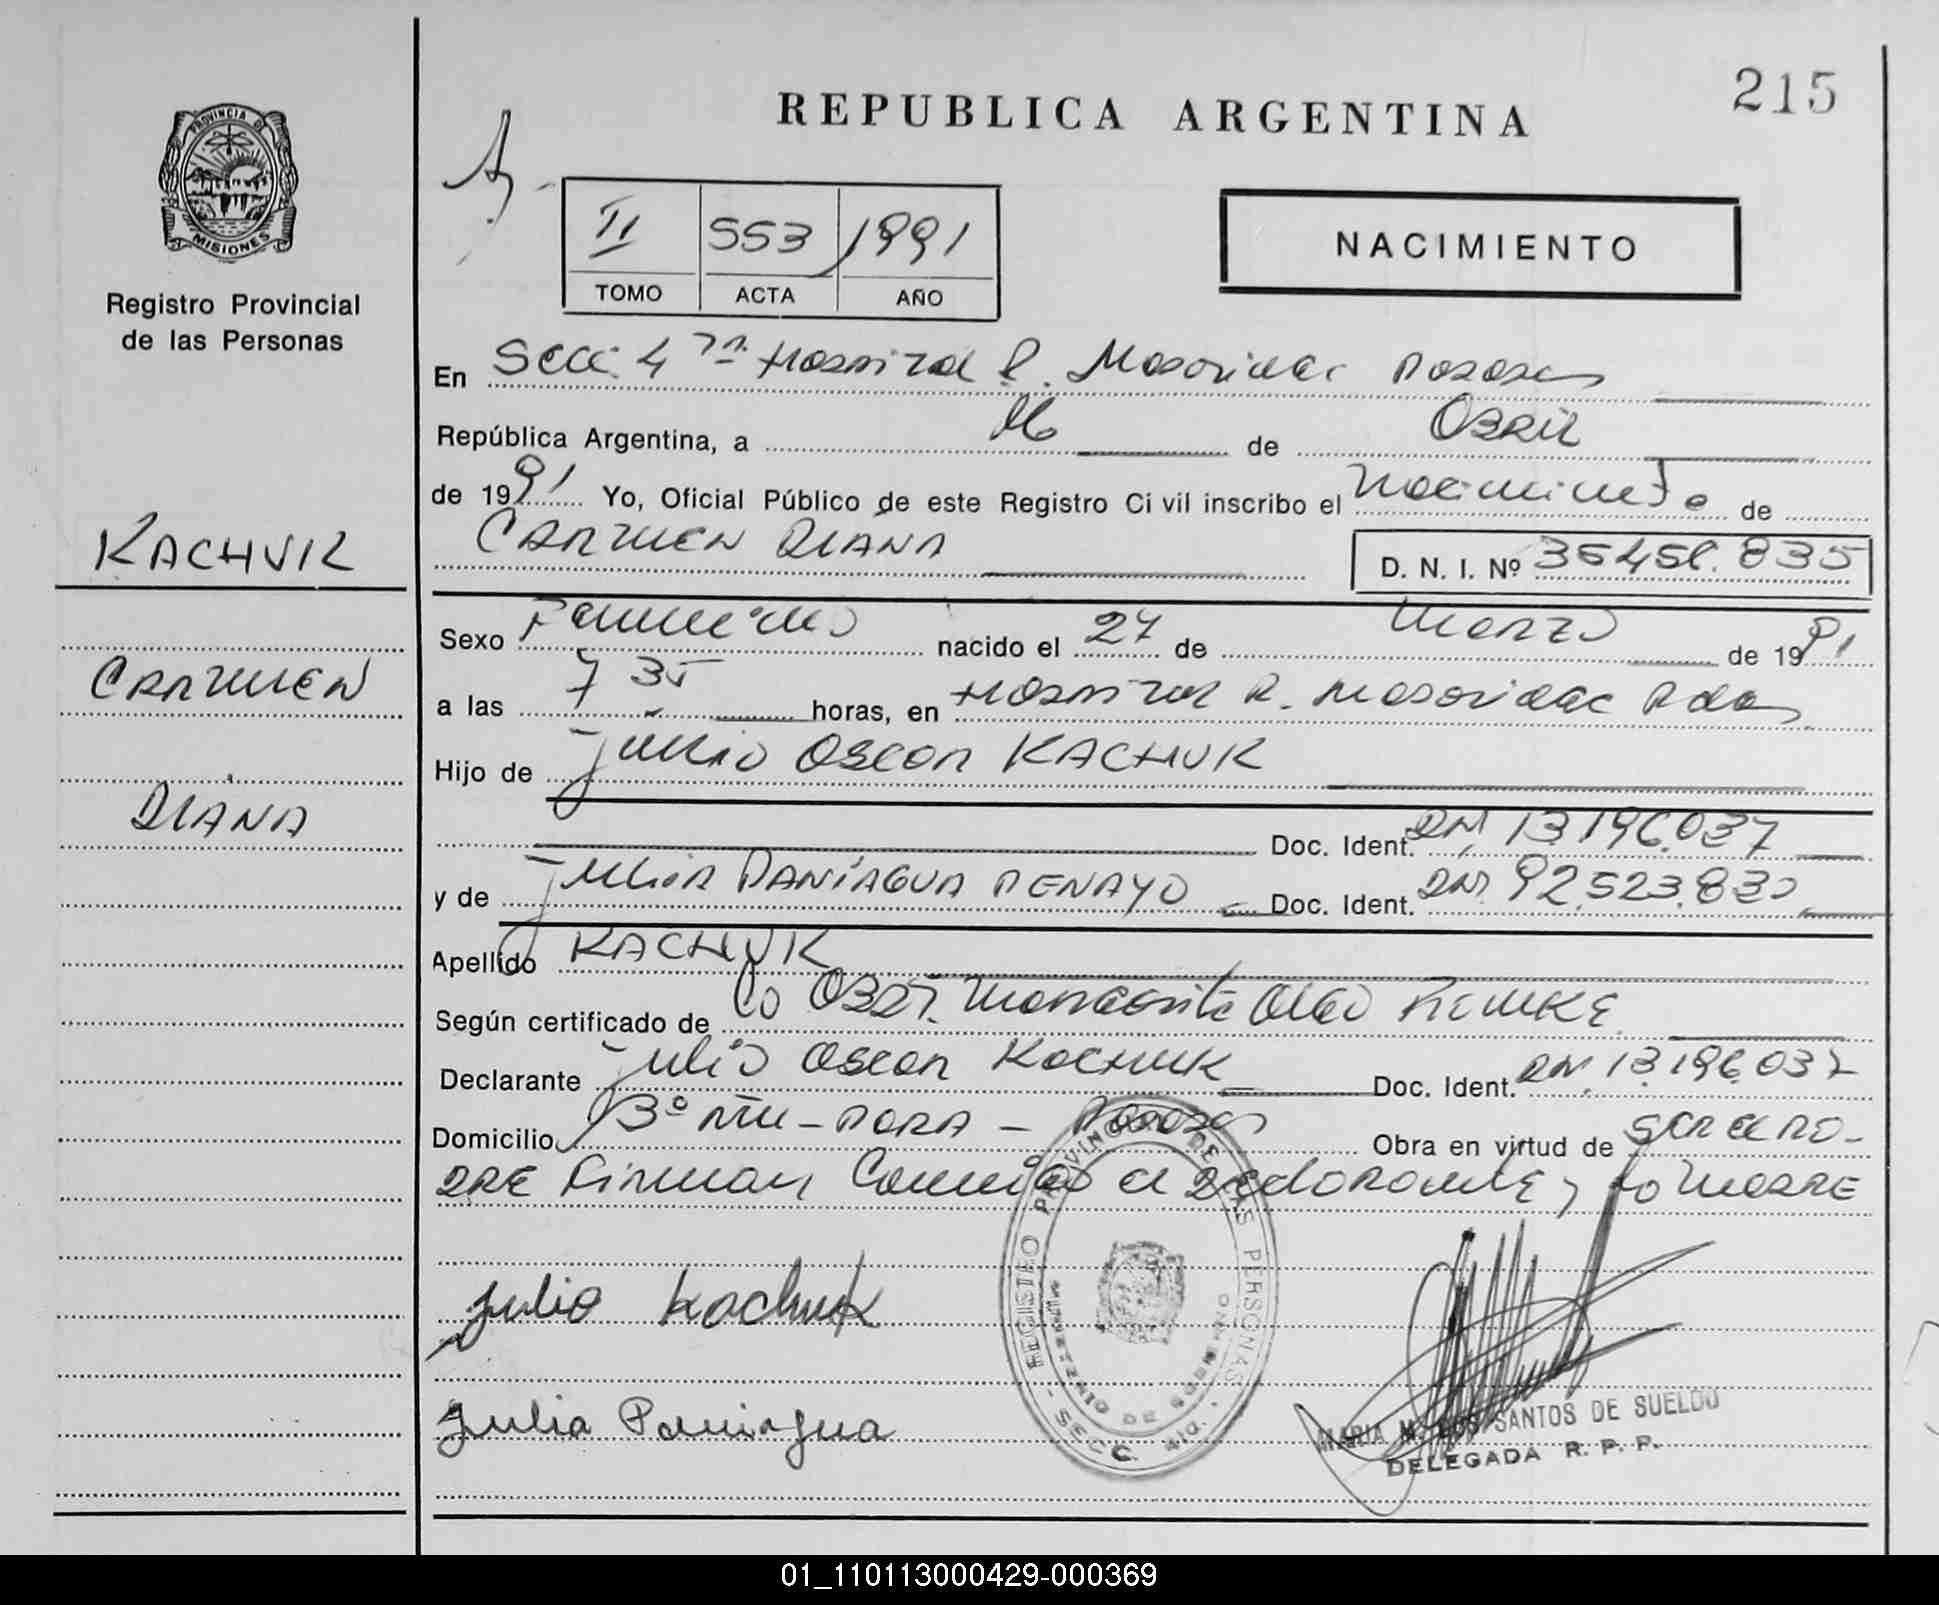 215
REPUBLICA ARGENTINA
PROVINCIA DE
MISIONES
Registro Provincial
de las Personas
II 553 1991
TOMO ACTA AÑO
NACIMIENTO
En Secc. 4 Hospital R. Posadas
República Argentina, a de Abril
de 1991 Yo, Oficial Público de este Registro Ci vil inscribo el nacimiento de
CARMEN DIANA D. N. I. Nº 835
KACHUK
CARMEN
DIANA
Sexo Femenino nacido el 27 de Marzo de 1991
a las 7 35 horas, en Hospital R. Pdas
Hijo de Julio Oscar KACHUK
Doc. Ident. DNI 13.196.037
y de Julia PANIAGUA PENAYO Doc. Ident. DNI 92.523.830
Apellido KACHUK
Según certificado de la Obst. Margarita
Declarante Julio Oscar Kachuk Doc. Ident. DNI 13.196.037
Domicilio Posadas Obra en virtud de ser el pa-
dre Firman Conmigo el declarante y la madre
Julio Kachuk
Julia Paniagua
REGISTRO PROVINCIAL DE LAS PERSONAS
MINISTERIO DE GOBIERNO
- SECC. 4ta. -
MARIA M. DOS SANTOS DE SUELDO
DELEGADA R. P. P.
01_110113000429-000369